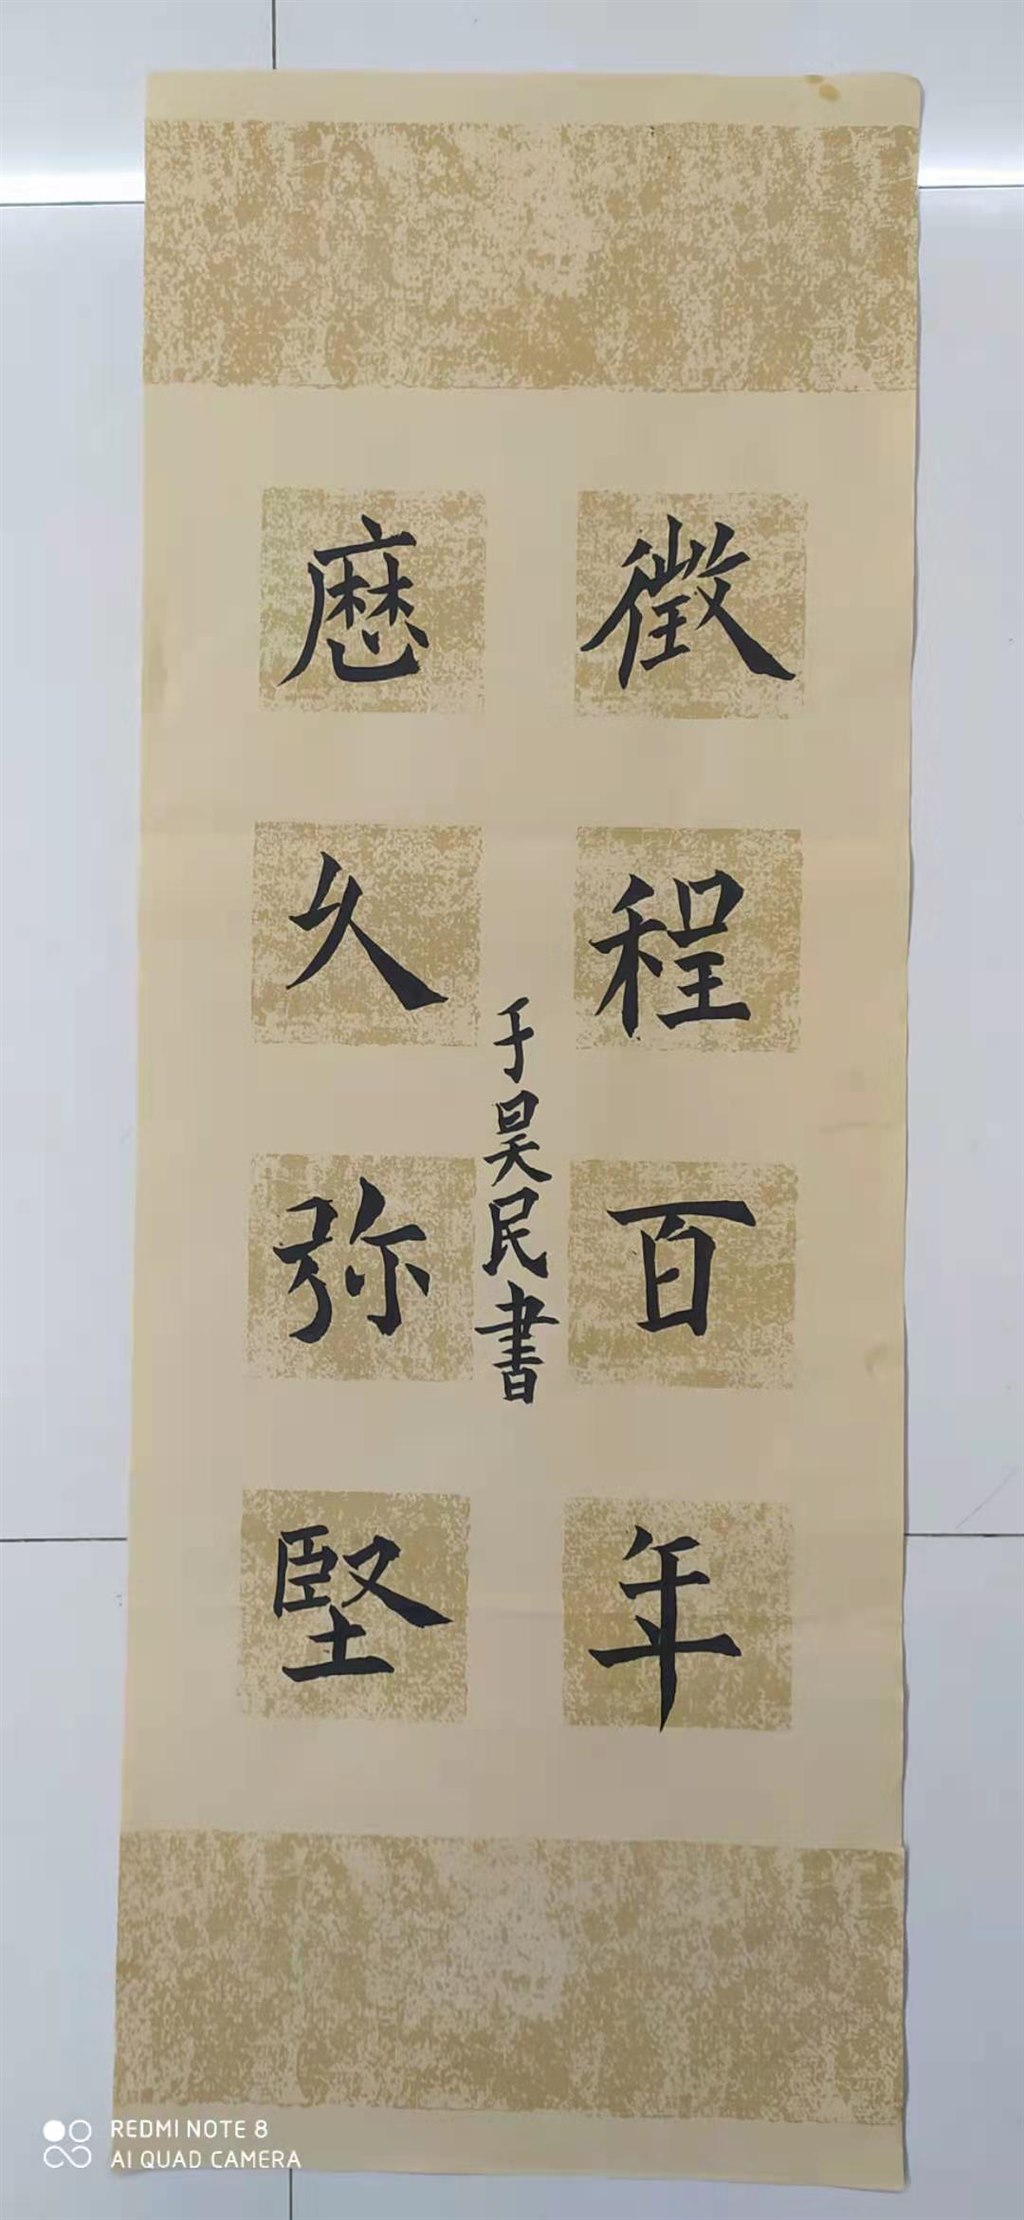 徵程百年
厯久弥堅
于昊民書
REDMI NOTE 8
AI QUAD CAMERA